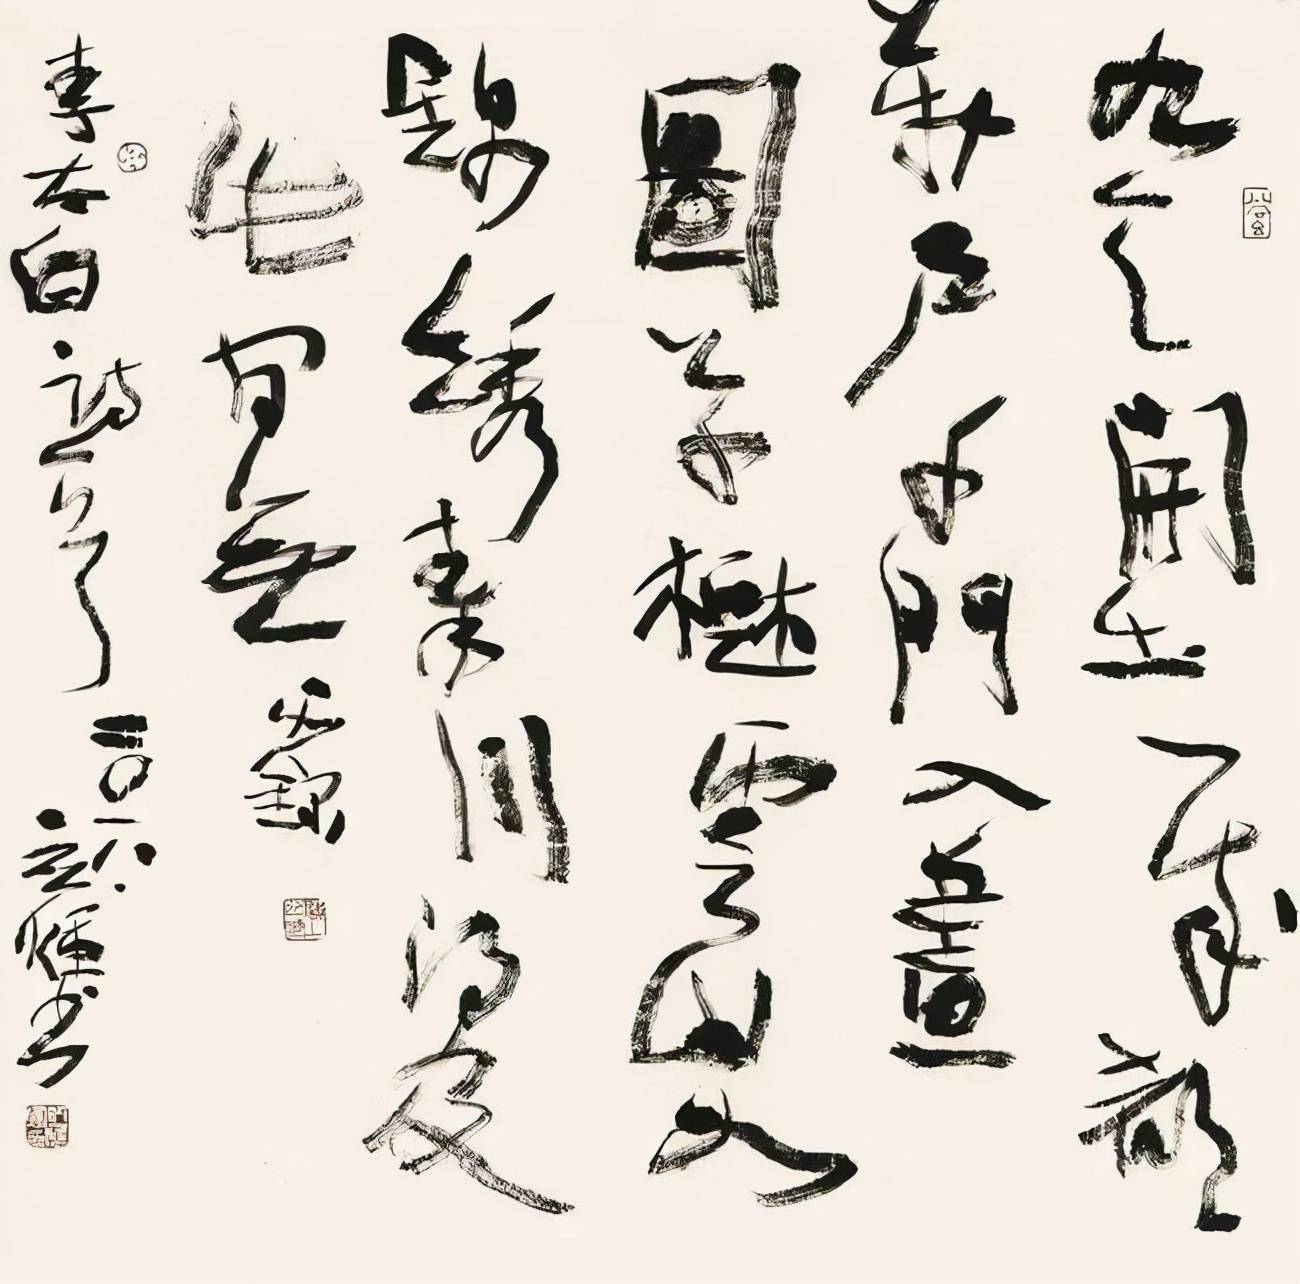 九天開出一成都
萬戶千門入畫
圖草樹雲山如
錦繡秦川得及
此間無
李太白詩一首
二〇一八
書